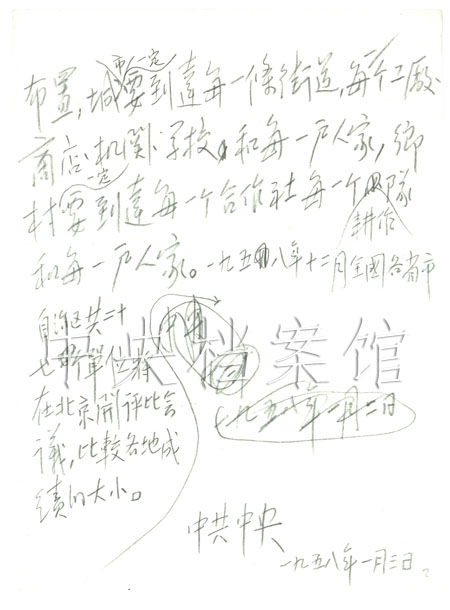 布置,城市一定要到達每一條街道,每个工廠、
商店、機関、学校,和每一户人家,鄉
村一定要到達每一个合作社每一个耕作隊
和每一户人家。一九五八年十二月全國各省市
自治区共二十
七个單位
在北京開評比会
議,比較各地成
績的大小。
一九五八年一月二日
中共中央
一九五八年一月三日。
中央档案馆